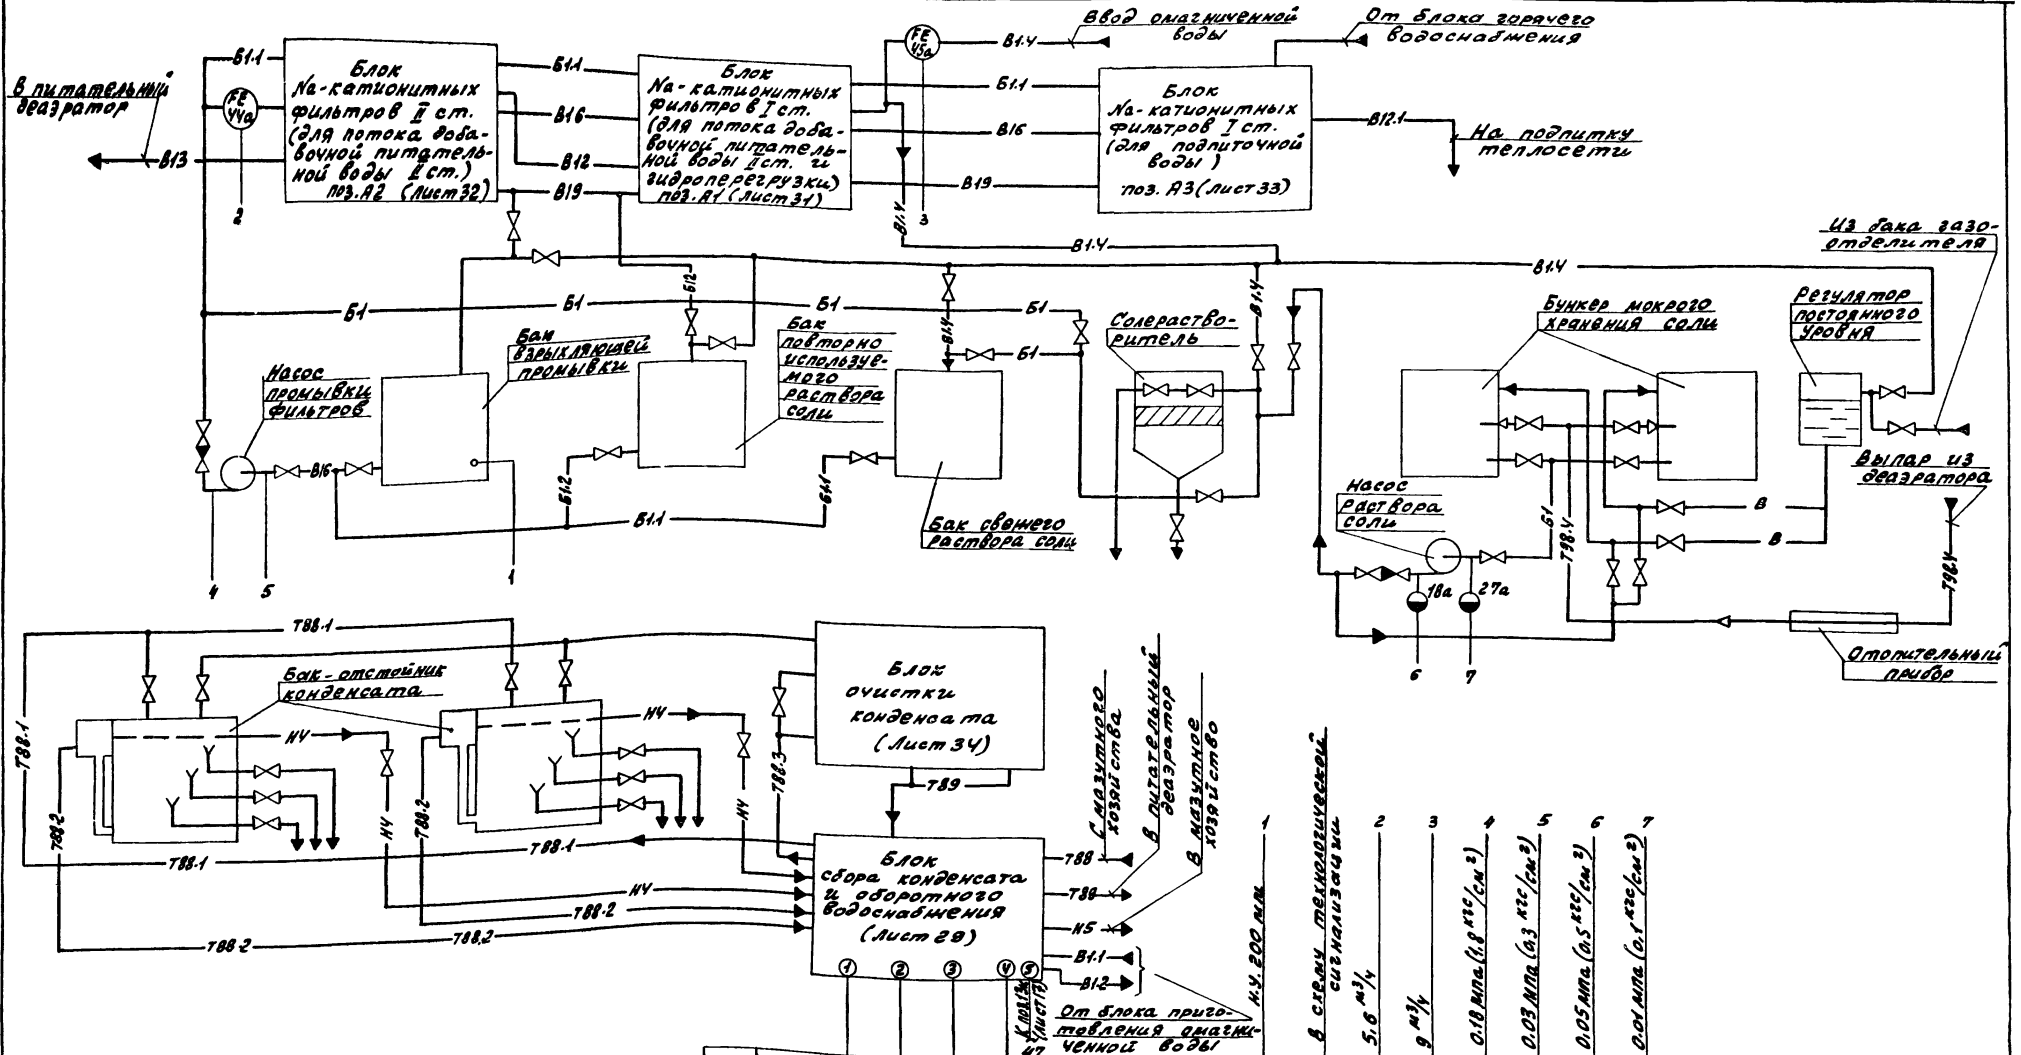 Ввод омагниченной
воды
От блока горячего
водоснабжения
В питательный
деаэратор
Б1.1
FE
44а
В13
2
Блок
Na-катионитных
фильтров II ст.
(для потока доба-
вочной питатель-
ной воды II ст.)
поз. А2 (лист 32)
Б1.1
В16
В12
В19
Блок
Na-катионитных
фильтров I ст.
(для потока доба-
вочной питатель-
ной воды II ст. и
гидроперегрузки)
поз. А1 (лист 31)
FE
45а
В1.4
3
Б1.1
В16
В19
В1.4
Блок
Na-катионитных
фильтров I ст.
(для подпиточной
воды)
поз. А3 (лист 33)
В12.1
На подпитку
теплосети
В1.4
В1.4
Из бака газо-
отделителя
Б1
Б1
Б1
Б1
Б12
В1.4
В1.4
Б1
Насос
промывки
фильтров
Бак
взрыхляющей
промывки
Бак
повторно
используе-
мого
раствора
соли
Солераство-
ритель
Бункер мокрого
хранения соли
Регулятор
постоянного
уровня
В16
Б1.2
Б1.1
Б1.1
4
5
1
Бак свежего
раствора соли
Насос
раствора
соли
Б1
Т98.4
В
В
Выпар из
деаэратора
Т98.4
18а
27а
6
7
Отопительный
прибор
Т88.1
Т88.1
Бак-отстойник
конденсата
Н4
Н4
Т88.2
Т88.2
Н4
Н4
Т88.3
Блок
очистки
конденсата
(Лист 34)
Т89
Т88.1
Т88.1
Н4
Т88.2
Т88.2
Т88.2
Блок
сбора конденсата
и оборотного
водоснабжения
(Лист 29)
1
2
3
4
5
Т88
Т89
Н5
В1.1
В1.2
С мазутного
хозяйства
В питательный
деаэратор
В мазутное
хозяйство
От блока приго-
товления омагни-
ченной воды
(лист 17)
47
1
Н.У. 200 мм
В схему технологической
сигнализации
2
5,6 м3/ч
3
9 м3/ч
4
0.18 МПа (1,8 кгс/см2)
5
0.03 МПа (0,3 кгс/см2)
6
0.05 МПа (0,5 кгс/см2)
7
0.01 МПа (0,1 кгс/см2)